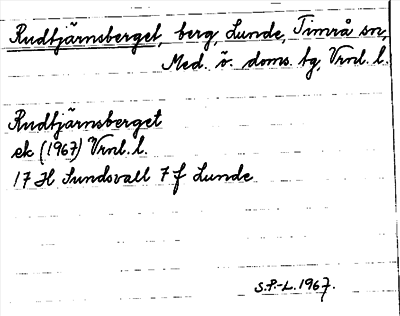 Rudtjärnsberget, berg, Lunde, Timrå sn,
Med. ö. doms. tg, Vrnl. l.
Rudtjärnsberget
ek (1967) Vrnl. l.
17 H Sundsvall 7 f Lunde
S.P.-L. 1967.